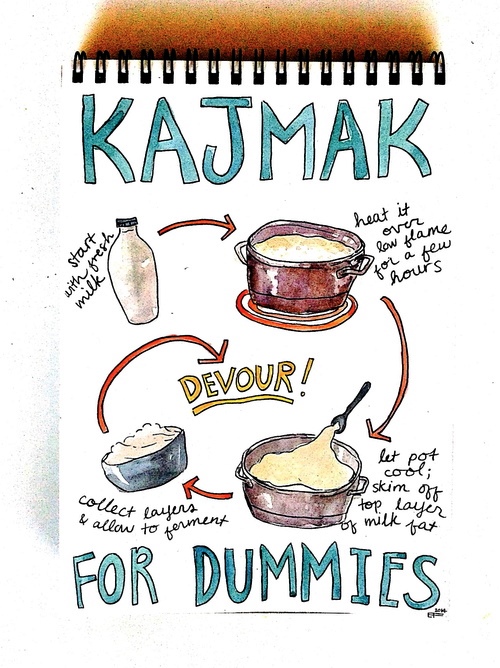 KAJMAK
start
with fresh
milk
heat it
over
low flame
for a few
hours
let pot
cool;
skim off
top layer
of milk fat
collect layers
& allow to ferment
DEVOUR!
FOR DUMMIES